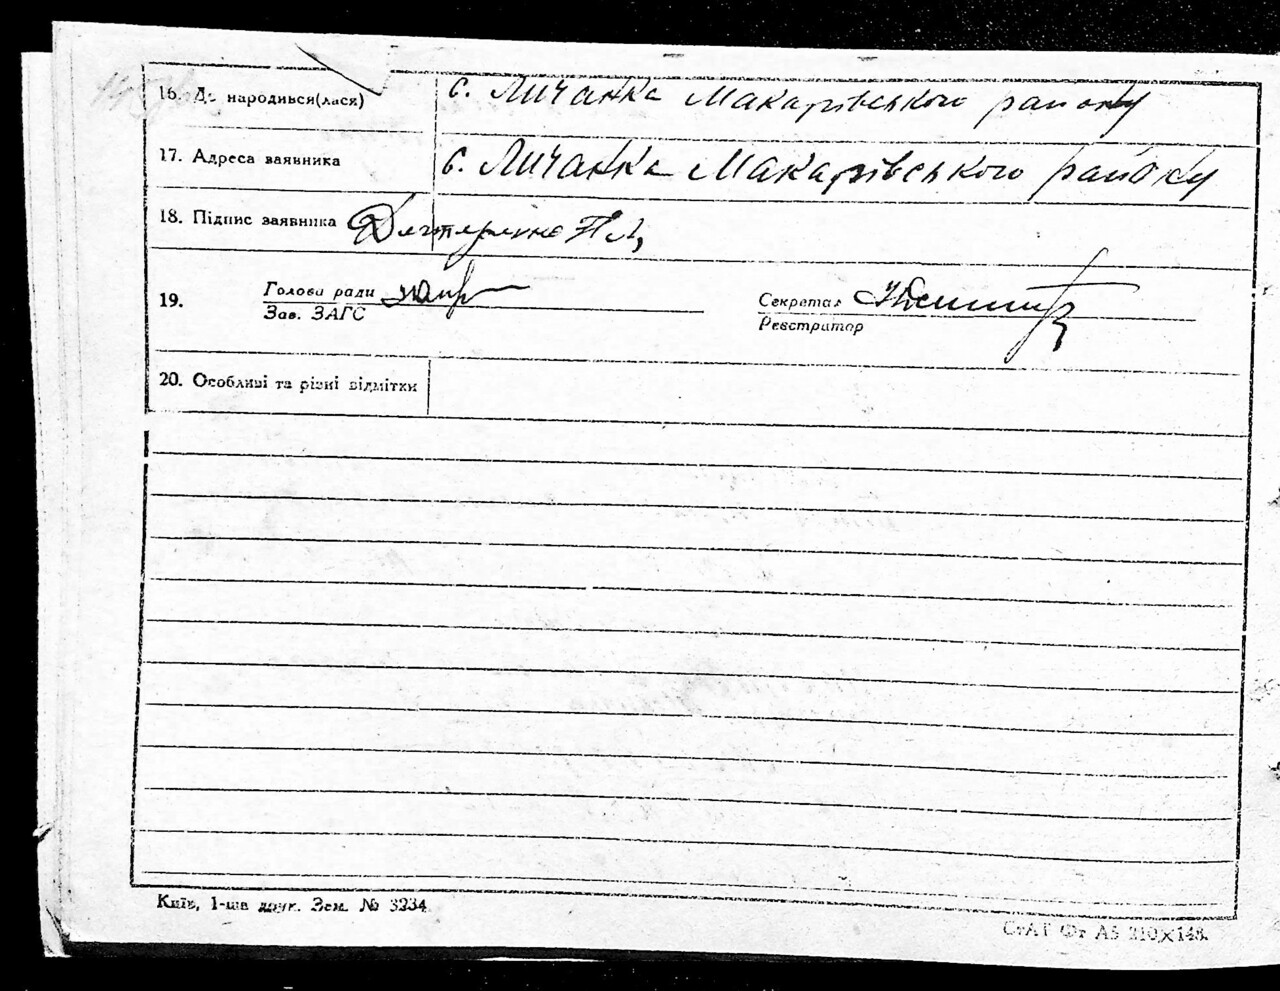 16. Де народився(лася) с. Личанка Макарівського району
17. Адреса заявника с. Личанка Макарівського району
18. Підпис заявника
19. Голова ради Секретар
Зав. ЗАГС Реєстратор
20. Особливі та різні відмітки
Київ, 1-ша друк. Зам. № 3234
СтАТ Фт А5 210×148.